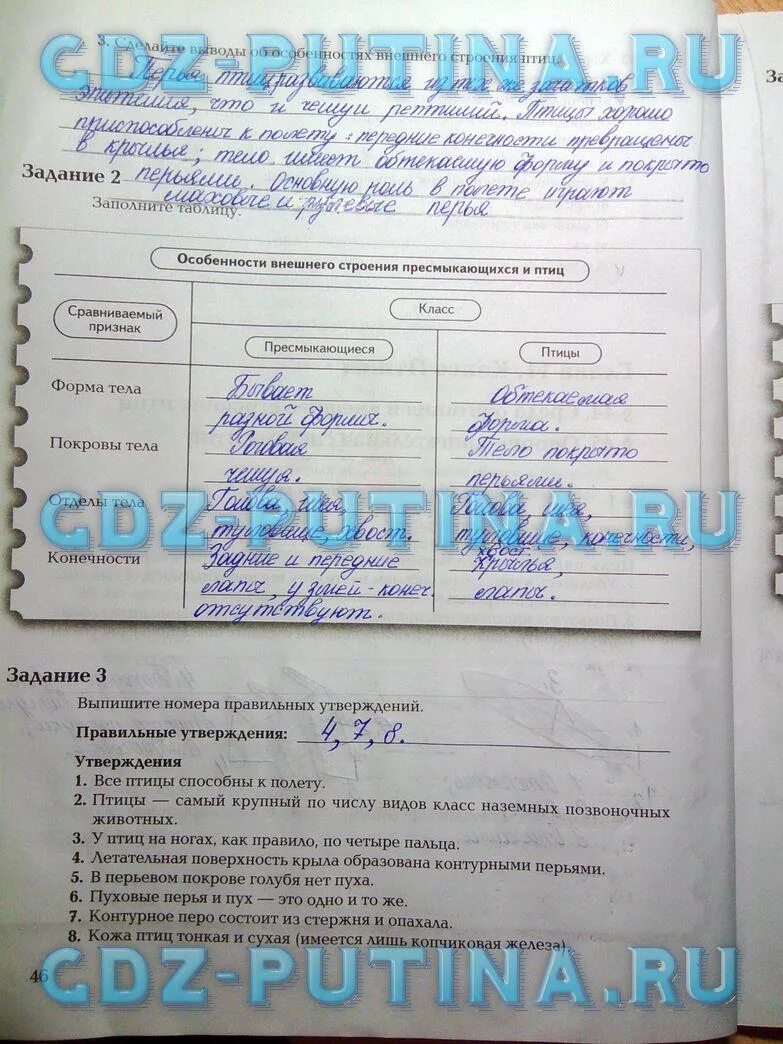 GDZ-PUTINA.RU
3. Сделайте выводы об особенностях внешнего строения птиц.
Перья птиц развиваются из тех же зачатков
эпителия, что и чешуи рептилий. Птицы хорошо
приспособлены к полету: передние конечности превращены
в крылья; тело имеет обтекаемую форму и покрыто
Задание 2 перьями. Основную роль в полете играют
Заполните таблицу. маховые и рулевые перья
Особенности внешнего строения пресмыкающихся и птиц
Сравниваемый признак
Класс
Пресмыкающиеся
Птицы
Форма тела
Бывает
разной формы.
Обтекаемая
форма.
Покровы тела
Роговая
чешуя.
Тело покрыто
перьями.
GDZ-PUTINA.RU
Отделы тела
Голова, шея,
туловище, хвост.
Голова, шея,
туловище, конечности,
хвост
Конечности
Задние и передние
лапы, у змей - конеч.
отсутствуют.
крылья,
лапы.
Задание 3
Выпишите номера правильных утверждений.
Правильные утверждения: 4, 7, 8.
Утверждения
1. Все птицы способны к полету.
2. Птицы — самый крупный по числу видов класс наземных позвоночных
животных.
3. У птиц на ногах, как правило, по четыре пальца.
4. Летательная поверхность крыла образована контурными перьями.
5. В перьевом покрове голубя нет пуха.
6. Пуховые перья и пух — это одно и то же.
7. Контурное перо состоит из стержня и опахала.
8. Кожа птиц тонкая и сухая (имеется лишь копчиковая железа).
46
GDZ-PUTINA.RU